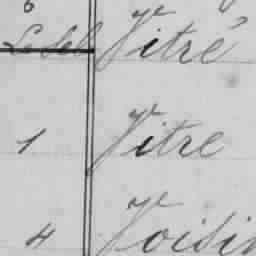 6 Vitré
1 Vitre
4 Voisin